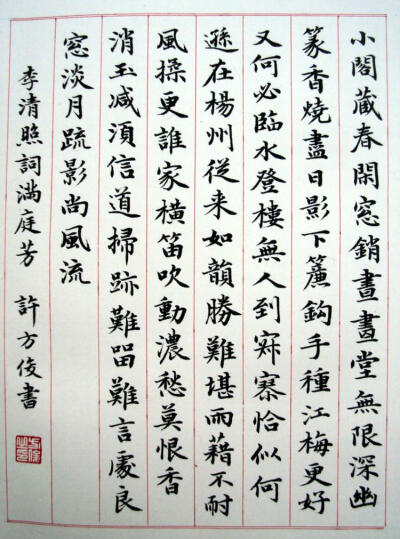 小閣藏春閑窓銷晝畫堂無限深幽
篆香燒盡日影下簾鈎手種江梅更好
又何必臨水登樓無人到寂寥恰似何
遜在楊州從来如韻勝難堪雨藉不耐
風揉更誰家橫笛吹動濃愁莫恨香
消玉减須信道掃跡難留難言處良
窓淡月疏影尚風流
李清照詞滿庭芳 許方俊書